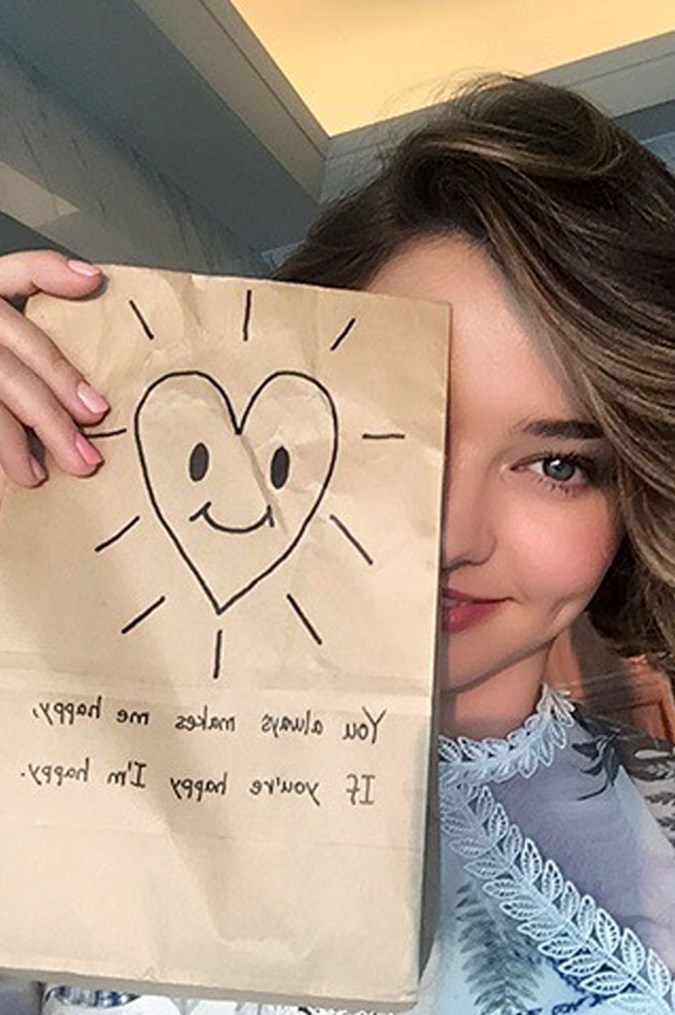 You always makes me happy,
If you're happy I'm happy.